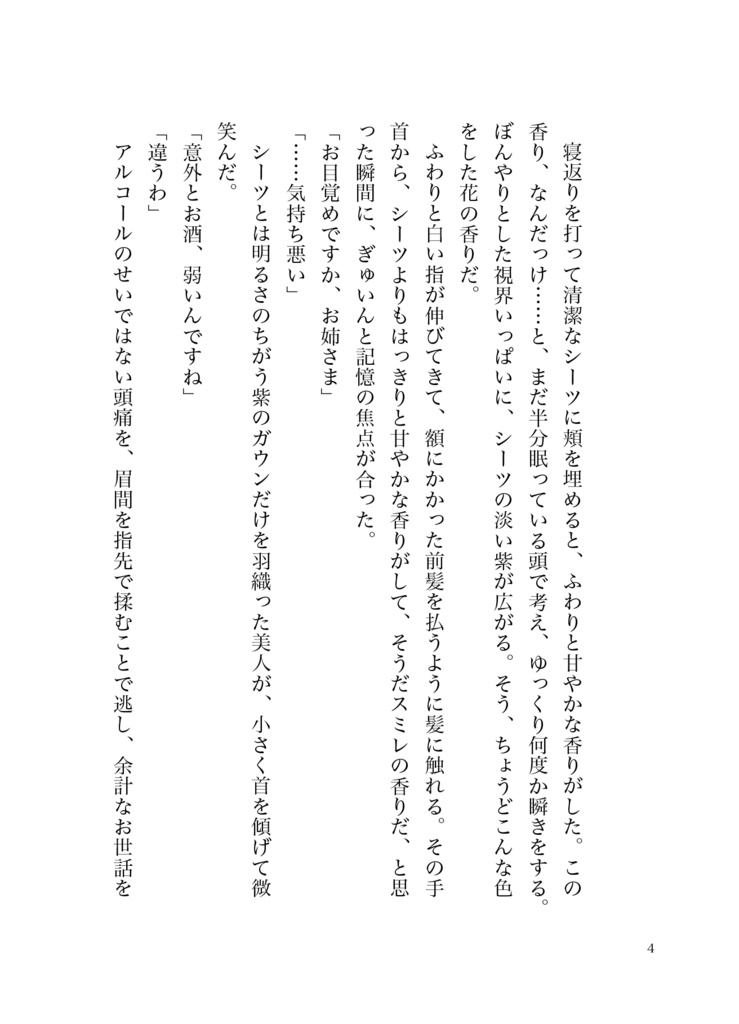 寝返りを打って清潔なシーツに頬を埋めると、ふわりと甘やかな香りがした。この
香り、なんだっけ……と、まだ半分眠っている頭で考え、ゆっくり何度か瞬きをする。
ぼんやりとした視界いっぱいに、シーツの淡い紫が広がる。そう、ちょうどこんな色
をした花の香りだ。
　ふわりと白い指が伸びてきて、額にかかった前髪を払うように髪に触れる。その手
首から、シーツよりもはっきりと甘やかな香りがして、そうだスミレの香りだ、と思
った瞬間に、ぎゅいんと記憶の焦点が合った。
「お目覚めですか、お姉さま」
「……気持ち悪い」
　シーツとは明るさのちがう紫のガウンだけを羽織った美人が、小さく首を傾げて微
笑んだ。
「意外とお酒、弱いんですね」
「違うわ」
　アルコールのせいではない頭痛を、眉間を指先で揉むことで逃し、余計なお世話を
4